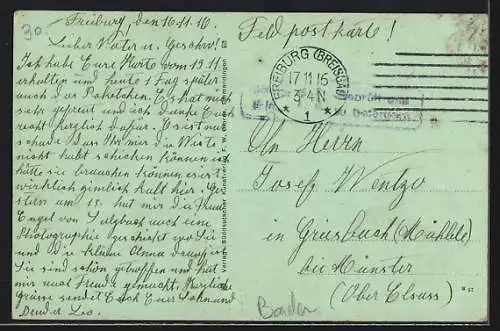 30.-
Freiburg, den 16.11.16.
Lieber Vater u. Geschw!
Ich habe Eure Karte vom 13.11
erhalten und heute 1 Tag später
auch das Paketchen. Es hat mich
sehr gefreut und ich danke Euch
recht herzlich dafür. Es ist nur
schade das Ihr mir die Weste
nicht habt schicken können ich
hätte sie brauchen können es ist
wirklich ziemlich kalt hier. Ge-
stern am 15. hat mir die Frau
Engel von Sulzbach auch eine
Photographie geschickt wo Sie
und Die kleine Anna drauf ist
Sie sind schön getroffen und hat
mir auch Freude gemacht. Herzliche
Grüsse sendet Euch Euer Sohn und
Bruder Leo.
Feldpostkarte!
FREIBURG (BREISGAU)
17 11 16
3-4 N
* 1 *
An Herrn
Josef Wentzo
in Griesbach (Mühlele)
bei Münster
(Ober Elsass)
Baden